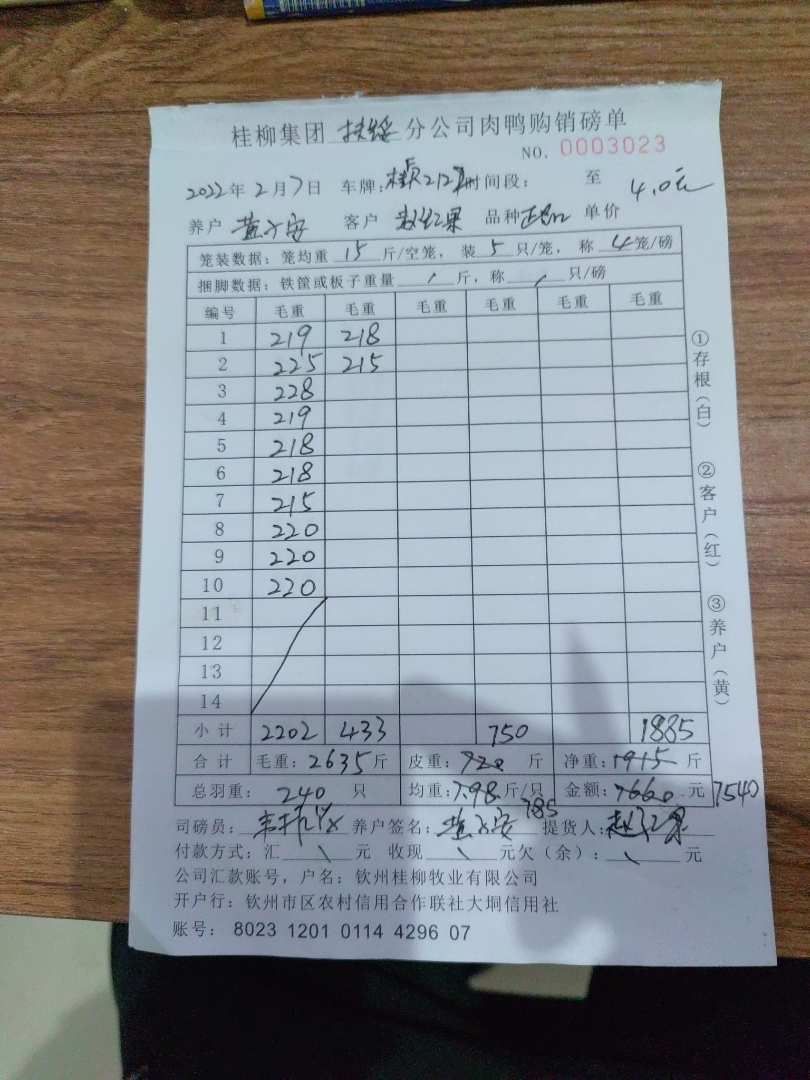 桂柳集团 扶绥 分公司肉鸭购销磅单
NO. 0003023
2022年2月7日 车牌: 时间段: 至
4.0元
养户 黄 安 客户 赵红果 品种 单价
笼装数据: 笼均重 15 斤/空笼, 装 5 只/笼, 称 4 笼/磅
捆脚数据: 铁筐或板子重量 / 斤, 称 / 只/磅
编号 毛重 毛重 毛重 毛重 毛重 毛重
1 219 218
2 225 215
3 228
4 219
5 218
6 218
7 215
8 220
9 220
10 220
11
12
13
14
小计 2202 433 750 1885
合计 毛重: 2635斤 皮重: 720 斤 净重: 1915 斤
总羽重: 240 只 均重: 7.98斤/只 金额: 7660 元 7540
785
司磅员: 养户签名: 黄 安 提货人: 赵红果
付款方式: 汇 \ 元 收现 \ 元欠(余): \ 元
公司汇款账号, 户名: 钦州桂柳牧业有限公司
开户行: 钦州市区农村信用合作联社大垌信用社
账号: 8023 1201 0114 4296 07
①存根(白)
②客户(红)
③养户(黄)